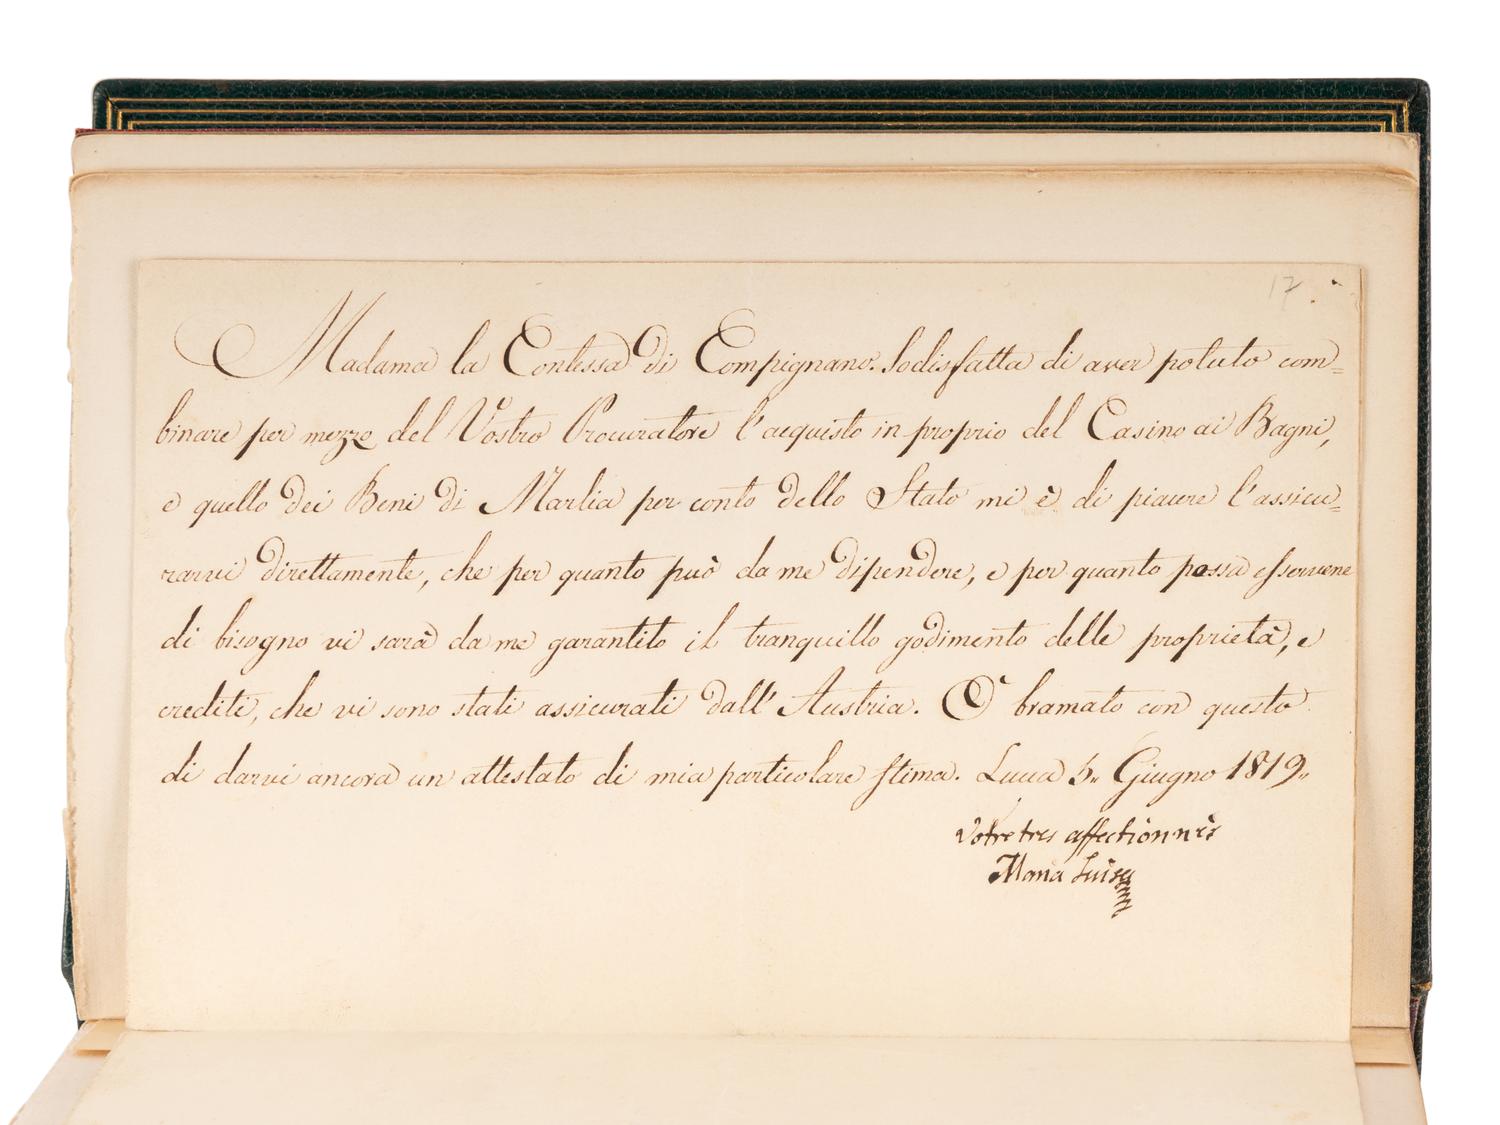 17.
Madama la Contessa di Compignano. Sodisfatta di aver potuto com=
binare per mezzo del Vostro Procuratore l'acquisto in proprio del Casino ai Bagni,
e quello dei Beni di Marlia per conto dello Stato mi è di piacere l'assicu=
rarvi direttamente, che per quanto può da me dipendere, e per quanto possa esservene
di bisogno vi sarà da me garantito il tranquillo godimento delle proprietà, e
crediti, che vi sono stati assicurati dall'Austria. Ò bramato con questo
di darvi ancora un attestato di mia particolare stima. Lucca 5,, Giugno 1819,,
Votre tres affectionnès
Maria Luisa